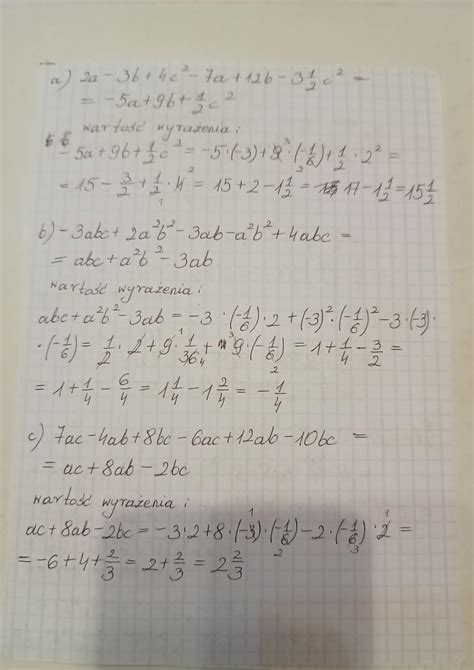 a) 2a - 3b + 4c² - 7a + 12b - 3 1/2 c² =
= -5a + 9b + 1/2 c²
wartość wyrażenia:
-5a + 9b + 1/2 c² = -5·(-3) + 9·(-1/6) + 1/2·2² =
= 15 - 3/2 + 1/2·4 = 15 + 2 - 1 1/2 = 17 - 1 1/2 = 15 1/2
b) -3abc + 2a²b² - 3ab - a²b² + 4abc =
= abc + a²b² - 3ab
wartość wyrażenia:
abc + a²b² - 3ab = -3·(-1/6)·2 + (-3)²·(-1/6)² - 3·(-3)·
·(-1/6) = 1/2·2 + 9·1/36 + 9·(-1/6) = 1 + 1/4 - 3/2 =
= 1 + 1/4 - 6/4 = 1 1/4 - 1 2/4 = -1/4
c) 7ac - 4ab + 8bc - 6ac + 12ab - 10bc =
= ac + 8ab - 2bc
wartość wyrażenia:
ac + 8ab - 2bc = -3·2 + 8·(-3)·(-1/6) - 2·(-1/6)·2 =
= -6 + 4 + 2/3 = 2 + 2/3 = 2 2/3